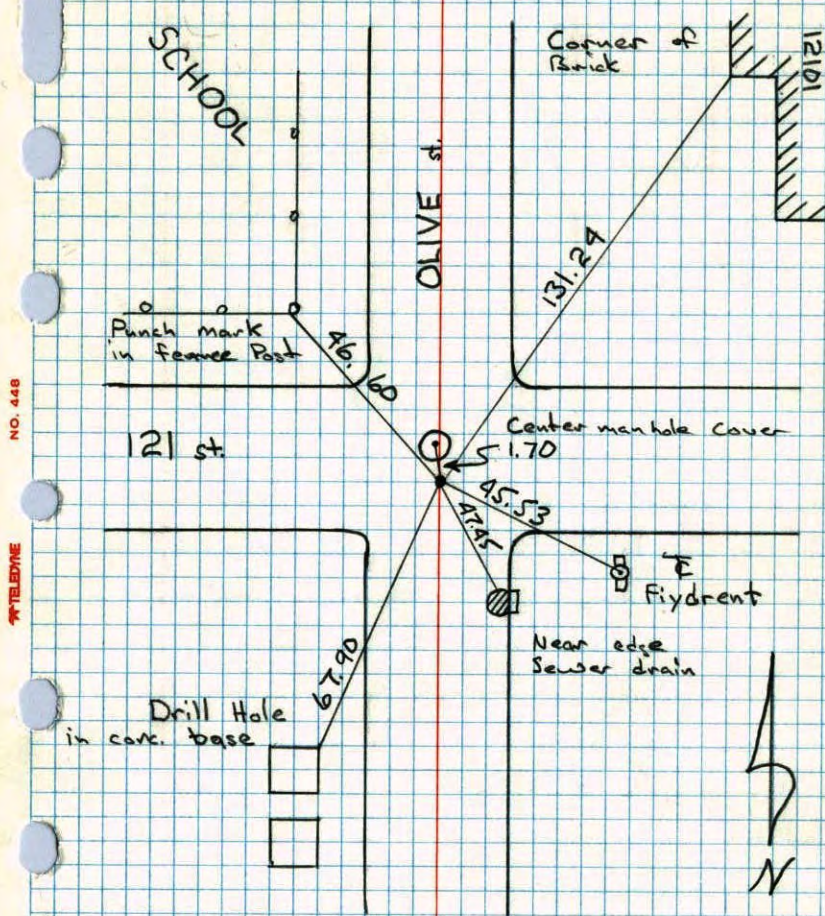 SCHOOL
Corner of
Brick
12101
OLIVE st.
131.24
Punch mark
in fennee Post
46.60
NO. 448
121 st.
Center manhole cover
1.70
45.53
47.45
TELEDYNE
Fiydrent
Near edge
Sewer drain
67.90
Drill Hole
in conc. base
N